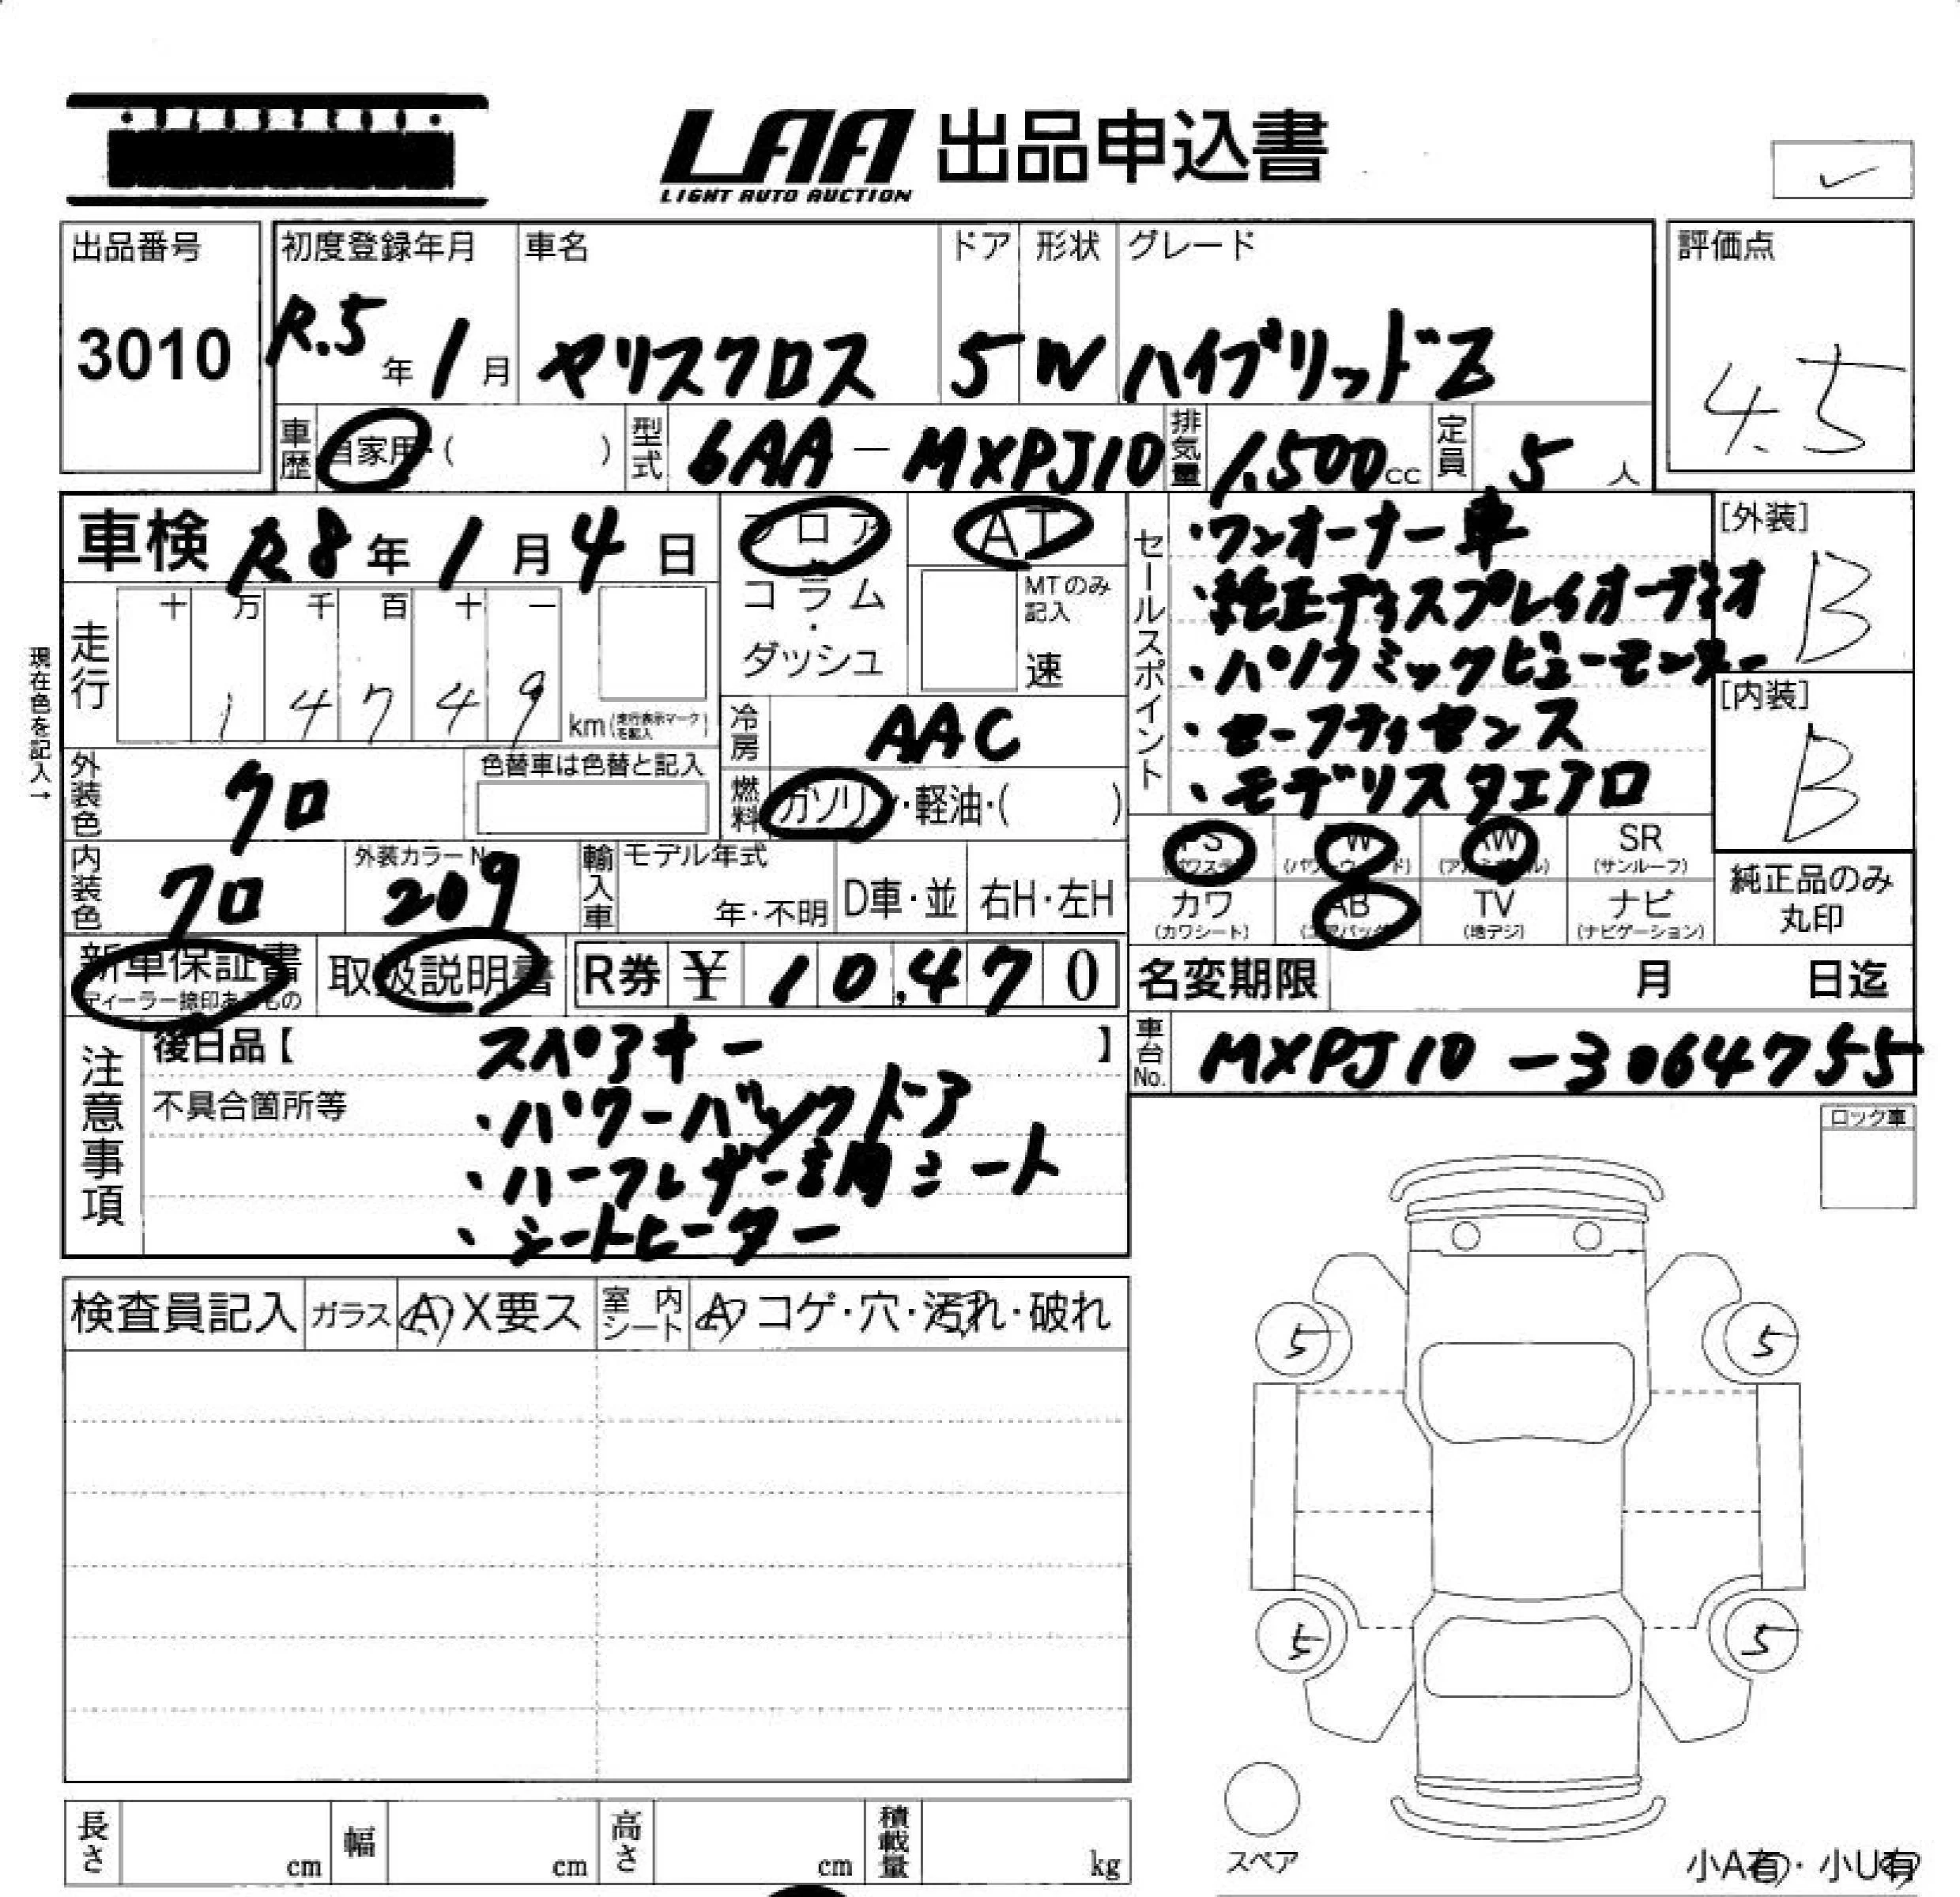 LAA 出品申込書
LIGHT AUTO AUCTION
出品番号
3010
初度登録年月
R.5年1月
車名
ヤリスクロス
ドア
5
形状
W
グレード
ハイブリッドZ
評価点
4.5
車歴
自家用・( )
型式
6AA-MXPJ10
排気量
1,500cc
定員
5人
車検 R8年1月4日
フロア
コラム・ダッシュ
AT
MTのみ記入
速
セールスポイント
・ワンオーナー車
・純正ディスプレイオーディオ
・パノラミックビューモニター
・セーフティセンス
・モデリスタエアロ
[外装]
B
[内装]
B
現在色を記入→
走行
十 万 千 百 十 一
1 4 7 4 9
km(走行表示マークを記入)
冷房
AAC
燃料
ガソリン・軽油・( )
外装色
クロ
色替車は色替と記入
内装色
クロ
外装カラーNo.
209
輸入車
モデル年式
年・不明
D車・並
右H・左H
PS (パワステ)
PW (パワーウィンド)
AW (アルミホイル)
SR (サンルーフ)
カワ (カワシート)
AB (エアバッグ)
TV (地デジ)
ナビ (ナビゲーション)
純正品のみ丸印
新車保証書
ディーラー捺印あるもの
取扱説明書
R券 ¥ 10,470
名変期限 月 日迄
車台No.
MXPJ10-3064755
注意事項
後日品【 スペアキー 】
不具合箇所等
・パワーバックドア
・ハーフレザー調シート
・シートヒーター
ロック車
検査員記入
ガラス
A・X要ス
室内シート
A・コゲ・穴・汚れ・破れ
5
5
5
5
スペア
長さ cm
幅 cm
高さ cm
積載量 kg
小A有・小U有